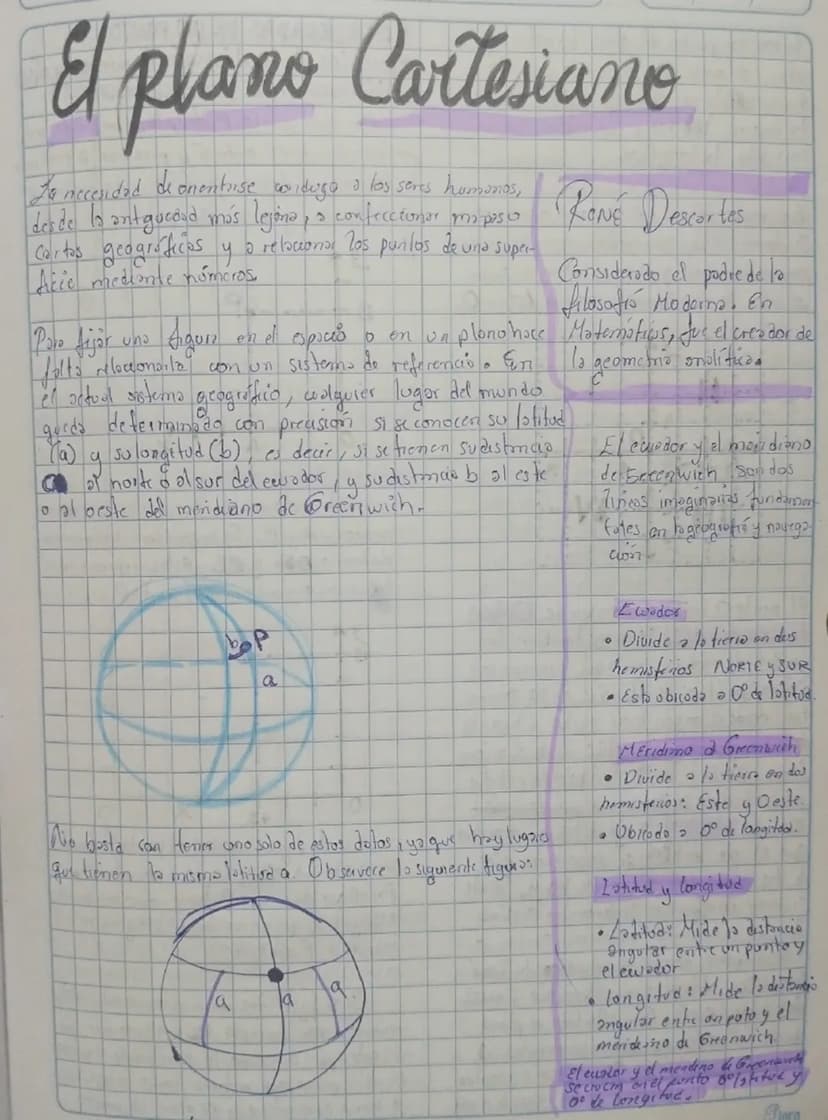 El plano Cartesiano
La necesidad de orientarse condujo a los seres humanos,
desde la antigüedad más lejana, a confeccionar mapas o
cartas geográficas y a relacionar los puntos de una super-
ficie mediante números.
Para fijar una figura en el espacio o en un plano hace
falta relacionarla con un sistema de referencia. En
el actual sistema geográfico, cualquier lugar del mundo
queda determinado con precisión si se conocen su latitud
(a) y su longitud (b), es decir, si se tienen su distancia
al norte o al sur del ecuador, y su distancia b al este
o al oeste del meridiano de Greenwich.
b P
a
No basta con tener uno solo de estos datos, ya que hay lugares
que tienen la misma latitud a. Observece la siguiente figura:
a a a
René Descartes
Considerado el padre de la
filosofía Moderna. En
Matemáticas, fue el creador de
la geometría analítica.
El ecuador y el meridiano
de Greenwich son dos
líneas imaginarias fundamen
tales en la geografía y navega
ción
Ecuador
• Divide a la tierra en dos
hemisferios NORTE y SUR
• Esta obicado a 0° de latitud.
Meridiano d Greenwich
• Divide a la tierra en dos
hemisferios: Este y Oeste
• Ubicado a 0° de longitud.
Latitud y longitud
• Latitud: Mide la distancia
angular entre un punto y
el ecuador
• longitud: Mide la distancia
angular entre un puto y el
meridiano de Greenwich.
El ecuador y el meridiano de Greenwich
se crucen en el punto 0° latitud y
0° de longitud.